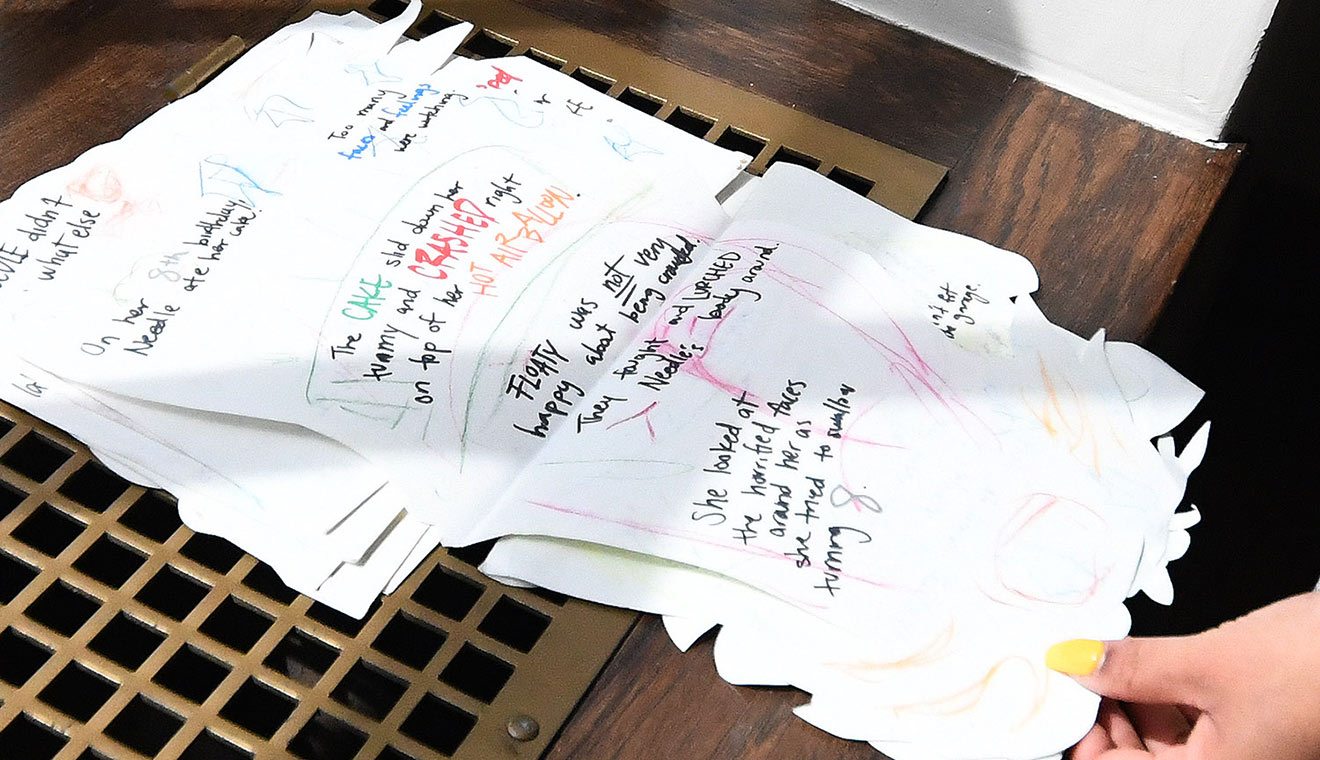 didn't
what else
On her 8th birthday,
Needle ate her cake!
Too many
faces and feelings
were watching.
The CAKE slid down her
tummy and CRASHED right
on top of her
HOT AIR BALLON!
FLOATY was not very
happy about being crowded.
They fought and LURCHED
Needle's body around.
She looked at
the horrified faces
around her as
she tried to swallow
turning 8.